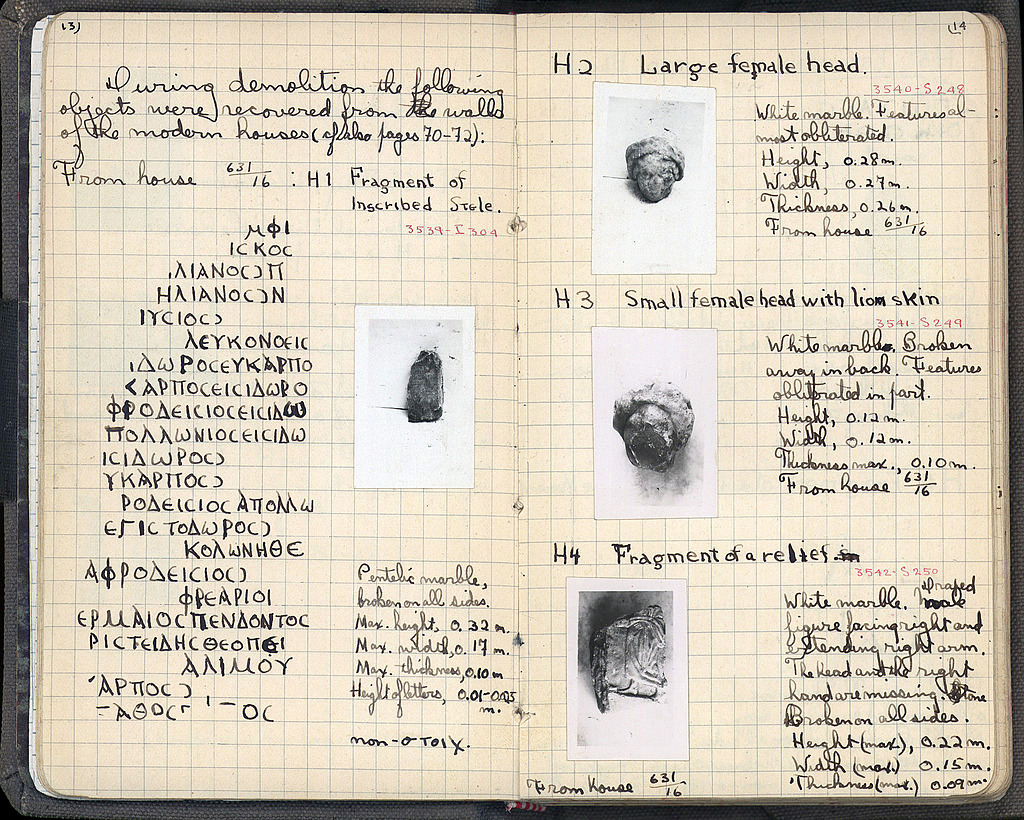 13)
During demolition the following
objects were recovered from the walls
of the modern houses (cf also pages 70-72):
From house 631/16 : H1 Fragment of
Inscribed Stele.
3539-I 304
ΜΦΙ
ΙCΚΟC
ΙΛΙΑΝΟCϽΠ
ΗΛΙΑΝΟCϽΝ
ΙΥCΙΟCϽ
ΛΕΥΚΟΝΟΕΙC
ΙΔΩΡΟCΕΥΚΑΡΠΟ
ΚΑΡΠΟCΕΙCΙΔΩΡΟ
ΦΡΟΔΕΙCΙΟCΕΙCΙΔΩ
ΠΟΛΛΩΝΙΟCΕΙCΙΔΩ
ΙCΙΔΩΡΟCϽ
ΥΚΑΡΠΟCϽ
ΡΟΔΕΙCΙΟCΑΠΟΛΛΩ
ΕΓΙCΤΟΔΩΡΟCϽ
ΚΟΛΩΝΗΘΕ
ΑΦΡΟΔΕΙCΙΟCϽ
ΦΡΕΑΡΙΟΙ
ΕΡΜΑΙΟCΠΕΝΔΟΝΤΟC
ΡΙCΤΕΙΔΗCΘΕΟΠΕΙ
ΑΛΙΜΟΥ
ΑΡΠΟCϽ
ΑΘΟC ΟC
Pentelic marble,
broken on all sides.
Max. height, 0.32 m.
Max. width, 0.17 m.
Max. thickness, 0.10 m
Height of letters, 0.01-0.025
m.
non-στοιχ.
14
H2 Large female head.
3540-S 248
White marble. Features al-
most obliterated.
Height, 0.28 m.
Width, 0.27 m.
Thickness, 0.26 m.
From house 631/16
H3 Small female head with lion skin
3541-S 249
White marble. Broken
away in back. Features
obliterated in part.
Height, 0.12 m.
Width, 0.12 m.
Thickness max., 0.10 m.
From house 631/16
H4 Fragment of a relief.
3542-S 250
White marble. Draped
figure facing right and
extending right arm.
The head and the right
hand are missing. Stone
Broken on all sides.
Height (max.), 0.22 m.
Width (max.) 0.15 m.
Thickness (max.) 0.09 m.
From house 631/16